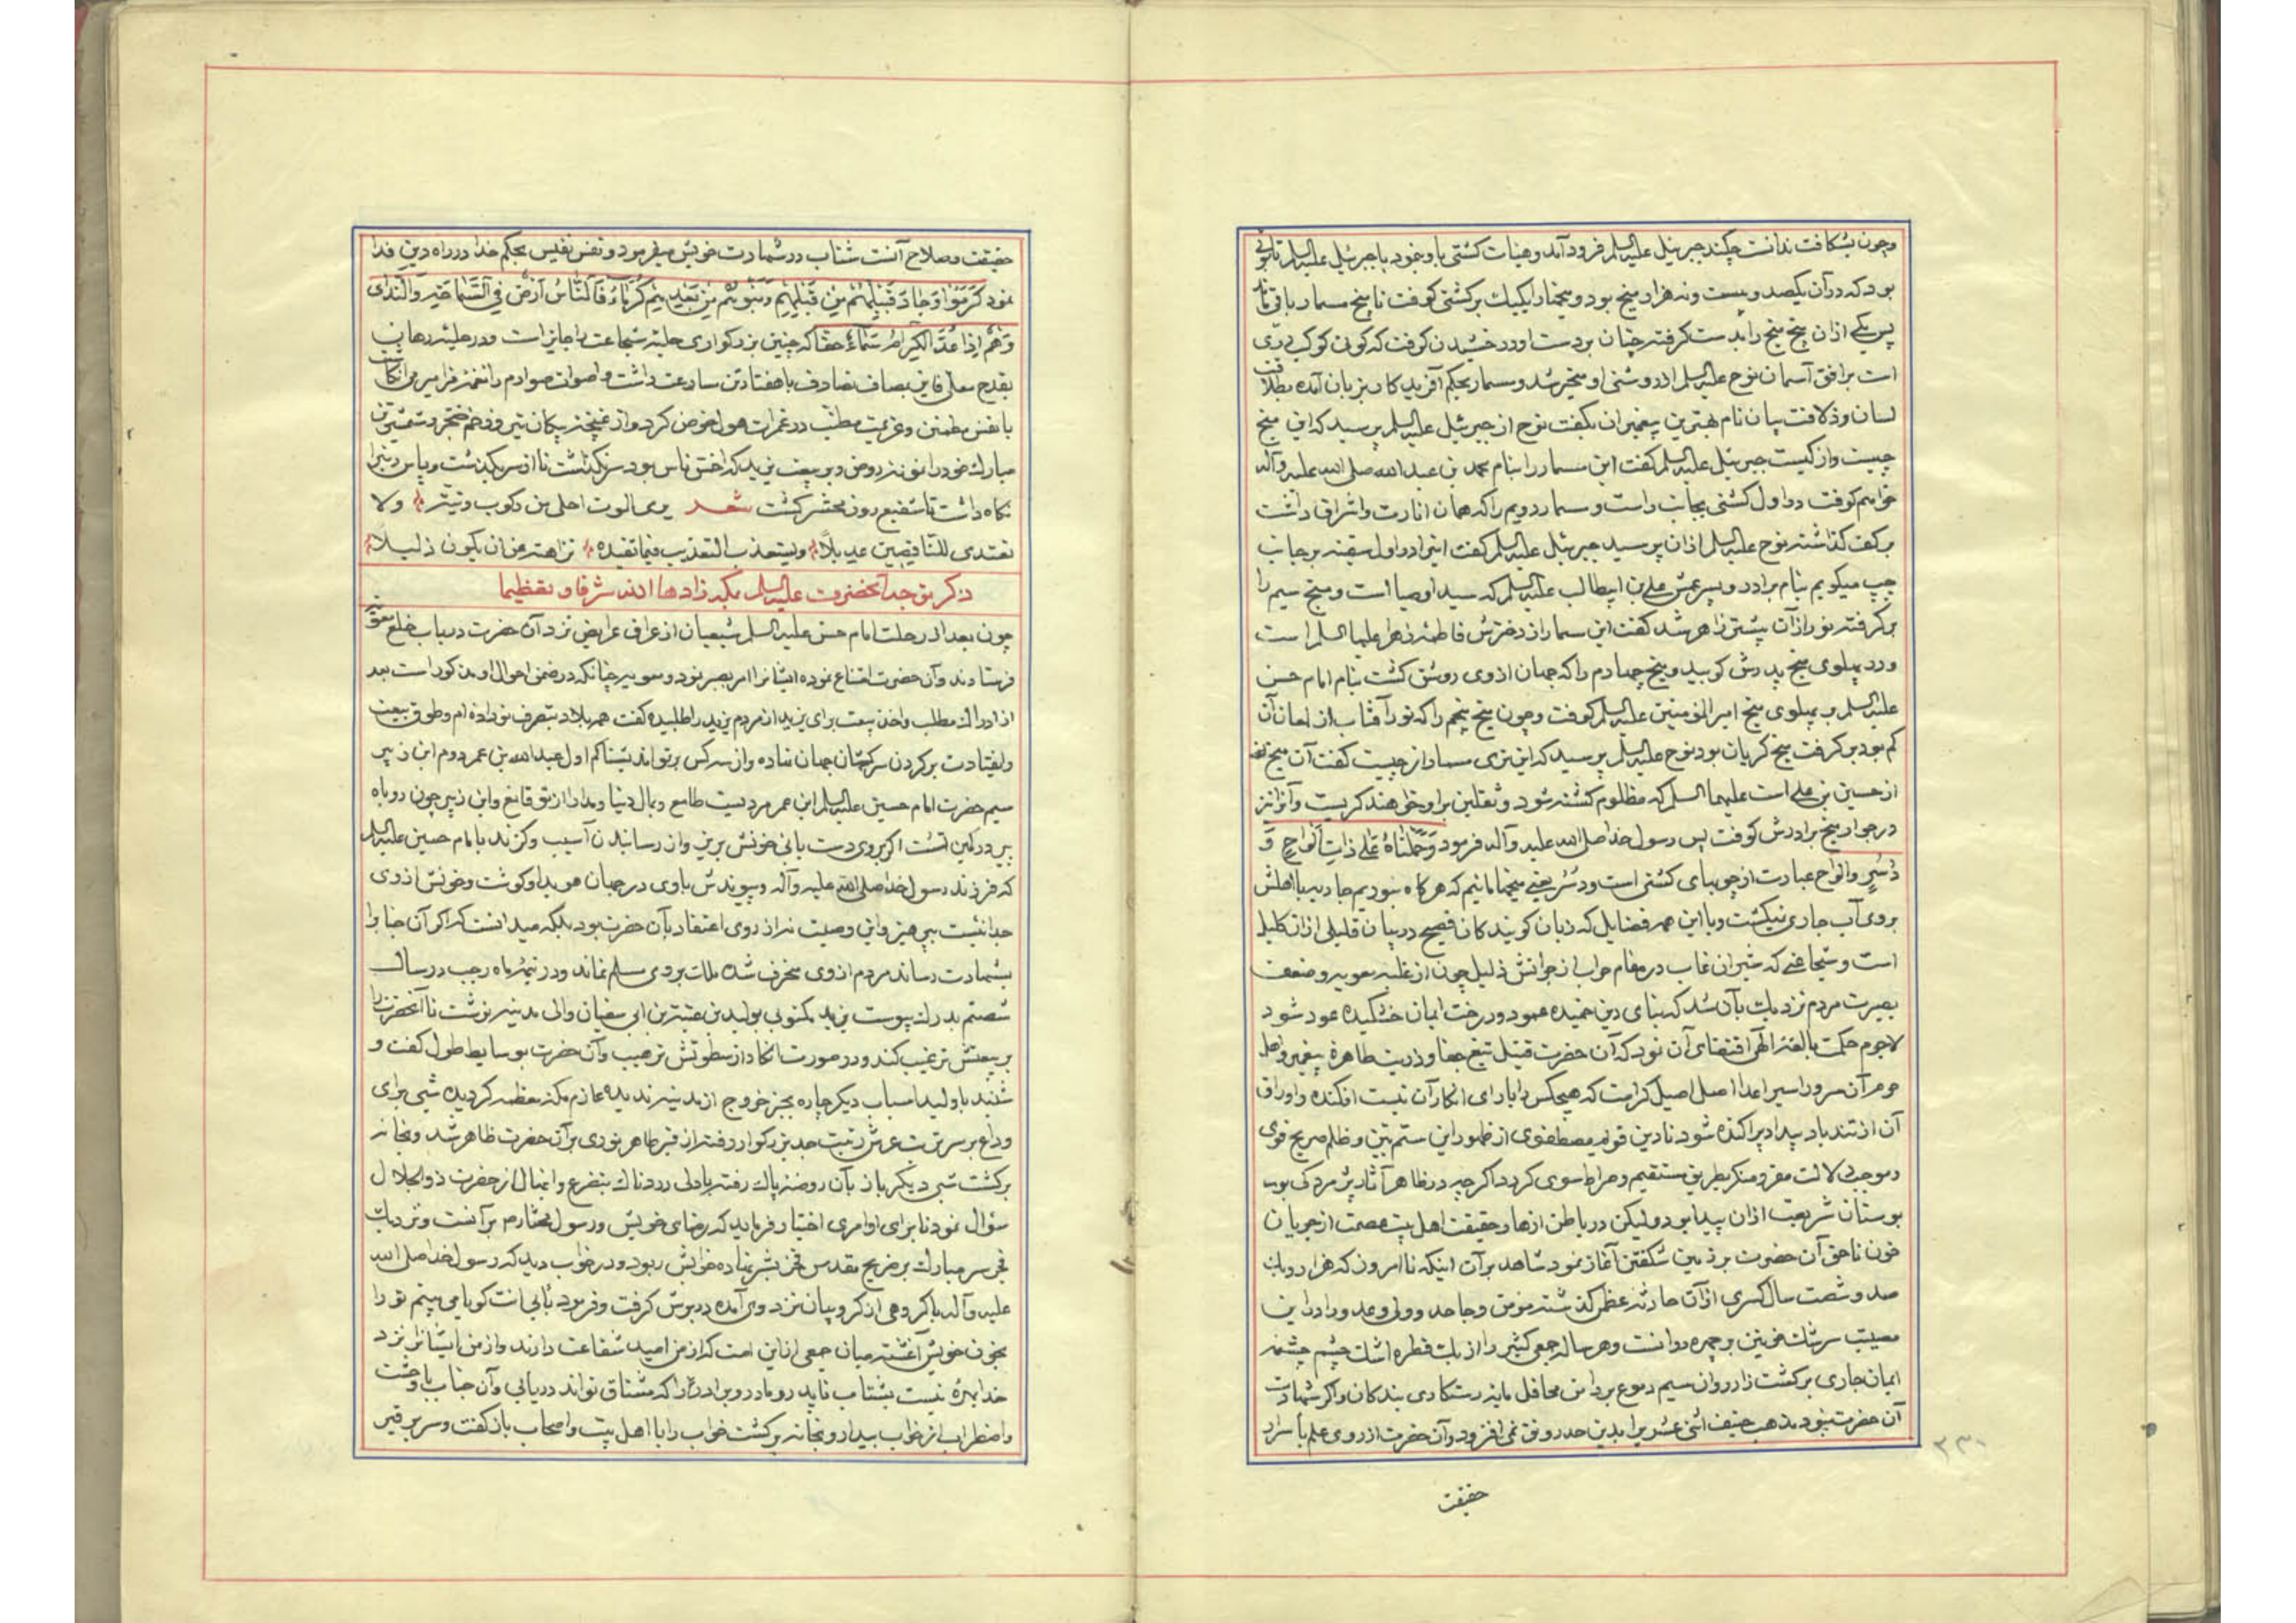 وچون بشکافت ندانست چکند جبرئیل علیه السلم فرود آمد وهیئات کشتی باو نمود با جبرئیل علیه السلم تابوتی
بود که در آن یکصد وبیست ونه هزار میخ بود ومیخها را یکیک بر کشتی کوفت تا پنج مسمار باقی ماند
پس یکی از ان پنج میخ را بدست گرفته چنان بر دست او درخشیدن گرفت که گوئی کوکب دری
است بر افق آسمان نوح علیه السلم از روشنی او متحیر شد ومسمار بحکم آفریدکار بزبان آمده بطلاقت
لسان وذلاقت بیان نام بهترین پیغمبران بگفت نوح از جبرئیل علیه السلم پرسید که این میخ
چیست واز کیست جبرئیل علیه السلم گفت این مسمار را بنام محمد بن عبد الله صلی الله علیه وآله
خواهم کوفت در اول کشتی بجانب راست ومسمار دویم را که همان انارت واشراق داشت
بر کف گذاشته نوح علیه السلم از ان پرسید جبرئیل علیه السلم گفت اینرا در اول سفینه بر جانب
چپ میکوبم بنام برادر وپسر عمش علی بن ابیطالب علیه السلم که سید اوصیا است ومیخ سیم را
بر گرفته نور از آن بیشتر ظاهر شد گفت این مسمار از دخترش فاطمه زهرا علیها السلم است
ودر پهلوی میخ پدرش کوبید ومیخ چهارم را که جهان از وی روشن گشت بنام امام حسن
علیه السلم بر پهلوی میخ امیر المؤمنین علیه السلم کوفت وچون میخ پنجم را که نور آفتاب از لمعان آن
کم بود بر گرفت میخ گریان بود نوح علیه السلم پرسید که این تری مسمار از چیست گفت آن میخ
از حسین بن علی است علیهما السلم که مظلوم کشته شود وثقلین بر او خواهند گریست وآنرا نیز
در جوار میخ برادرش کوفت پس رسول خدا صلی الله علیه وآله فرمود وَحَمَلْنَاهُ عَلَی ذَاتِ أَلْوَاحٍ وَ
دُسُرٍ والواح عبارت از چوبهای کشتی است ودسر یعنی میخها مائیم که هرگاه نبودیم جاریه با اهلش
بر روی آب جاری نمیگشت وبا این همه فضایل که زبان گویندکان فصیح در بیان قلیلی از ان کلیل
است وشجاعتی که شیران غاب در مقام حراب از جرأتش ذلیل چون از غلبه معویه وضعف
بصیرت مردم نزدیک بآن شد که بنای دین خمیده عمود ودرخت ایمان خشکیده عود شود
لاجرم حکمت بالغه الهی اقتضای آن نمود که آن حضرت قتیل تیغ جفا وذریت طاهره پیغمبر واهل
حرم آن سرور اسیر اعدا اصل اصیل کرامت که هیچکس را یارای انکار آن نیست افکنده واوراق
آن از تندباد بیداد پراکنده شود تا دین قویم مصطفوی از ظهور این ستم بیّن وظلم صریح قوی
وموجب دلالت مقر ومنکر بطریق مستقیم وصراط سوی گردد اگر چه در ظاهر آثار پژمردکی بر
بوستان شریعت از ان پیدا بود ولیکن در باطن ازهار حقیقت اهل بیت عصمت از جریان
خون ناحق آن حضرت بر زمین شکفتن آغاز نمود شاهد بر آن اینکه تا امروز که هزار ودویست
صد وشصت سال کسری از آن حادثه عظمی گذشته مؤمن وجاحد وولی وعدو را در این
مصیبت سرشک خونین بر چهره روانست وهر ساله جمعی کثیر را از یک قطره اشک چشم چشمه
ایمان جاری بر کشت زار روان سیم دموع برد این محافل مایه رستکاری بندکان واگر شهادت
آن حضرت نبود مذهب حنیف اثنی عشریرا بدین حد رونق نمی افزود وآن حضرت از روی علم باسرار
حقیقت
۳۳۰
حقیقت وصلاح آنست شتاب در شهادت خویش میفرمود ونفس نفیس بحکم خدا در راه دین فدا
نمود کَرُمُوا وَجَادَ قَبِيلُهُمْ مِنْ قَبْلِهِمْ وَبَنُوهُمْ مِنْ بَعْدِهِمْ كُرَمَاءُ فَالنَّاسُ أَرْضٌ فِي السَّمَاحَةِ وَالنَّدَى
وَهُمْ إِذَا عُدَّ الْكِرَامُ سَمَاءُ حقا که چنین بزرکواری حلیه شجاعت را جایز است ودر حلبه رهان
بقدح معلی فایز بمصاف تصادف با هفتاد تن مسارعت داشت واصوات صوارم را نغمه مزامیر می انگاشت
با نفس مطمئن وعزیمت مطلب در غمرات هول خوض کرد واز غنچه پیکان تیر وزخم خنجر دست نشست
مبارک خود را نمونه روض وبر بیعت یزید که اخس ناس بود سر نگذاشت تا از سر بگذشت وپاس دین را
نگاه داشت تا شفیع روز محشر گشت شعر یری الموت احلی من رکوب دنیة ولا
تغتدی للناقصین عدیلا ویستعذب التعذیب فیما تفیده نزاهته عن ان یکون ذلیلا
ذکر توجه آنحضرت علیه السلم بمکه زادها الله شرفا وتعظیما
چون بعد از رحلت امام حسن علیه السلم شیعیان از عراق عرایض نزد آن حضرت در باب خلع معویه
فرستادند وآن حضرت امتناع نموده ایشانرا امر بصبر نمود ومعویه چنانکه در ضمن احوال او مذکور است بعد
از ادراک مطلب واخذ بیعت برای یزید از مردم یزید را طلبیده گفت همه بلاد بتصرف تو داده ام وطوق بیعت
وانقیادت بر گردن سرکشان جهان نهاده واز سه کس بر تو اندیشناکم اول عبد الله بن عمر دوم ابن زبیر
سیم حضرت امام حسین علیه السلم ابن عمر مردیست طامع وبمال دنیا ومدارا از تو قانع وابن زبیر چون روباه
پیر در کمین تست اگر بر وی دست یابی خونش بریز واز رسانیدن آسیب وگزند بامام حسین علیه السلم
که فرزند رسول خدا صلی الله علیه وآله وپیوندش باوی در جهان هویدا وگوشت وخونش از وی
جدا نیست بپرهیز واین وصیت نه از روی اعتقاد بآن حضرت بود بلکه میدانست که اگر آن جنابرا
بشهادت رساند مردم از وی منحرف شده ملک بر وی مسلم نماند ودر نیمه ماه رجب در سال
شصتم بدرک پیوست یزید مکتوبی بولید بن عتبة بن ابی سفیان والی مدینه نوشت تا آنحضرت را
بر بیعتش ترغیب کند ودر صورت انکار از سطوتش ترهیب وآن حضرت بوسایط طول گفت و
شنید با ولید اسباب دیگر چاره بجز خروج از مدینه ندیده عازم مکه معظمه گردیده شبی برای
وداع بر سر تربت عرش رتبت جد بزرگوار رفته از قبر طاهر نوری بر آن حضرت ظاهر شد وبخانه
برگشت شبی دیگر باز بآن روضه پاک رفته با دلی دردناک بتضرع وابتهال از حضرت ذو الجلال
سؤال نمود تا برای او امری اختیار فرماید که رضای خویش ورسول مختارم بر آنست ونزدیک
فجر سر مبارک بر ضریح مقدس فخر بشر نهاده خوابش ربود ودر خواب دید که رسول خدا صلی الله
علیه وآله با گروهی از کروبیان نزد وی آمده در برش گرفت وفرمود بابی انت گویا می بینم تو را
بخون خویش آغشته میان جمعی از این امت که از من امید شفاعت دارند واز من ایشانرا نزد
خدا بهره نیست بشتاب نماید رو مادر وبرادرت را که مشتاق تواند دریابی وآن جناب با وحشت
واضطراب از خواب بیدار وبخانه برگشت خواب را با اهل بیت واصحاب باز گفت وسر بر قبر